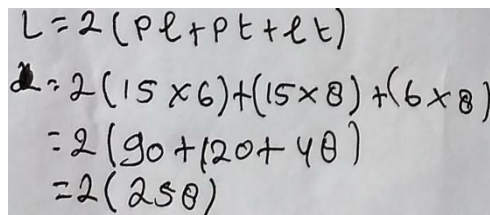 L = 2 (pl + pt + lt)
L = 2 (15 × 6) + (15 × 8) + (6 × 8)
= 2 (90 + 120 + 48)
= 2 (258)